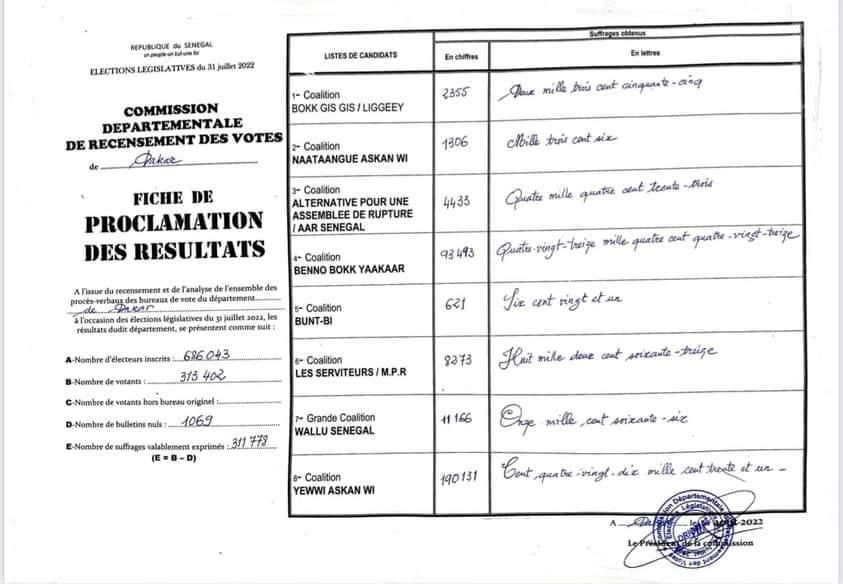 REPUBLIQUE du SENEGAL
un peuple un but une foi
ELECTIONS LEGISLATIVES du 31 juillet 2022
COMMISSION
DEPARTEMENTALE
DE RECENSEMENT DES VOTES
de Dakar
FICHE DE
PROCLAMATION
DES RESULTATS
A l'issue du recensement et de l'analyse de l'ensemble des
procès-verbaux des bureaux de vote du département
de Dakar
à l'occasion des élections législatives du 31 juillet 2022, les
résultats dudit département, se présentent comme suit :
A-Nombre d'électeurs inscrits : 686 043
B-Nombre de votants : 313 402
C-Nombre de votants hors bureau originel :
D-Nombre de bulletins nuls : 1069
E-Nombre de suffrages valablement exprimés : 311 778
(E = B – D)
LISTES DE CANDIDATS
Suffrages obtenus
En chiffres
En lettres
1- Coalition
BOKK GIS GIS / LIGGEEY
2355
Deux mille trois cent cinquante-cinq
2- Coalition
NAATAANGUE ASKAN WI
1306
Mille trois cent six
3- Coalition
ALTERNATIVE POUR UNE
ASSEMBLEE DE RUPTURE
/ AAR SENEGAL
4433
Quatre mille quatre cent trente-trois
4- Coalition
BENNO BOKK YAAKAAR
93 493
Quatre-vingt-treize mille quatre cent quatre-vingt-treize
5- Coalition
BUNT-BI
621
Six cent vingt et un
6- Coalition
LES SERVITEURS / M.P.R
8273
Huit mille deux cent soixante-treize
7- Grande Coalition
WALLU SENEGAL
11 166
Onze mille cent soixante-six
8- Coalition
YEWWI ASKAN WI
190131
Cent quatre-vingt-dix mille cent trente et un -
A Dakar le 2022
Le Président de la commission